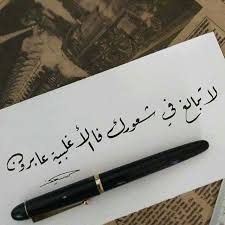 لا تبالغ في شعورك فالأغلبية عابرون